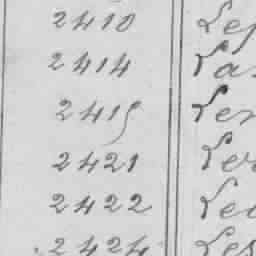 2410 Lep
2414 Las
2415 Ler
2421 Ler
2422 Lec
2424 Les